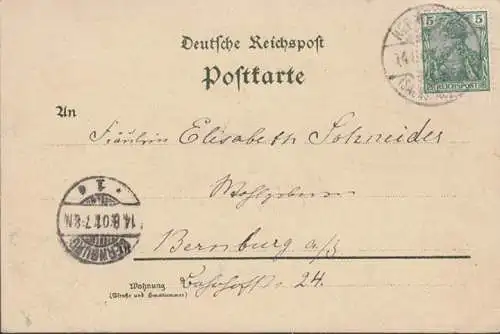 Deutsche Reichspost
Postkarte
5 5
REICHSPOST
14.8
An
Fräulein Elisabeth Schneider
Wohlgeboren
Bernburg a/S
* 1 e
14.8.01.7-8N.
BERNBURG
Wohnung
Bahnhofstr. 24.
(Straße und Hausnummer)